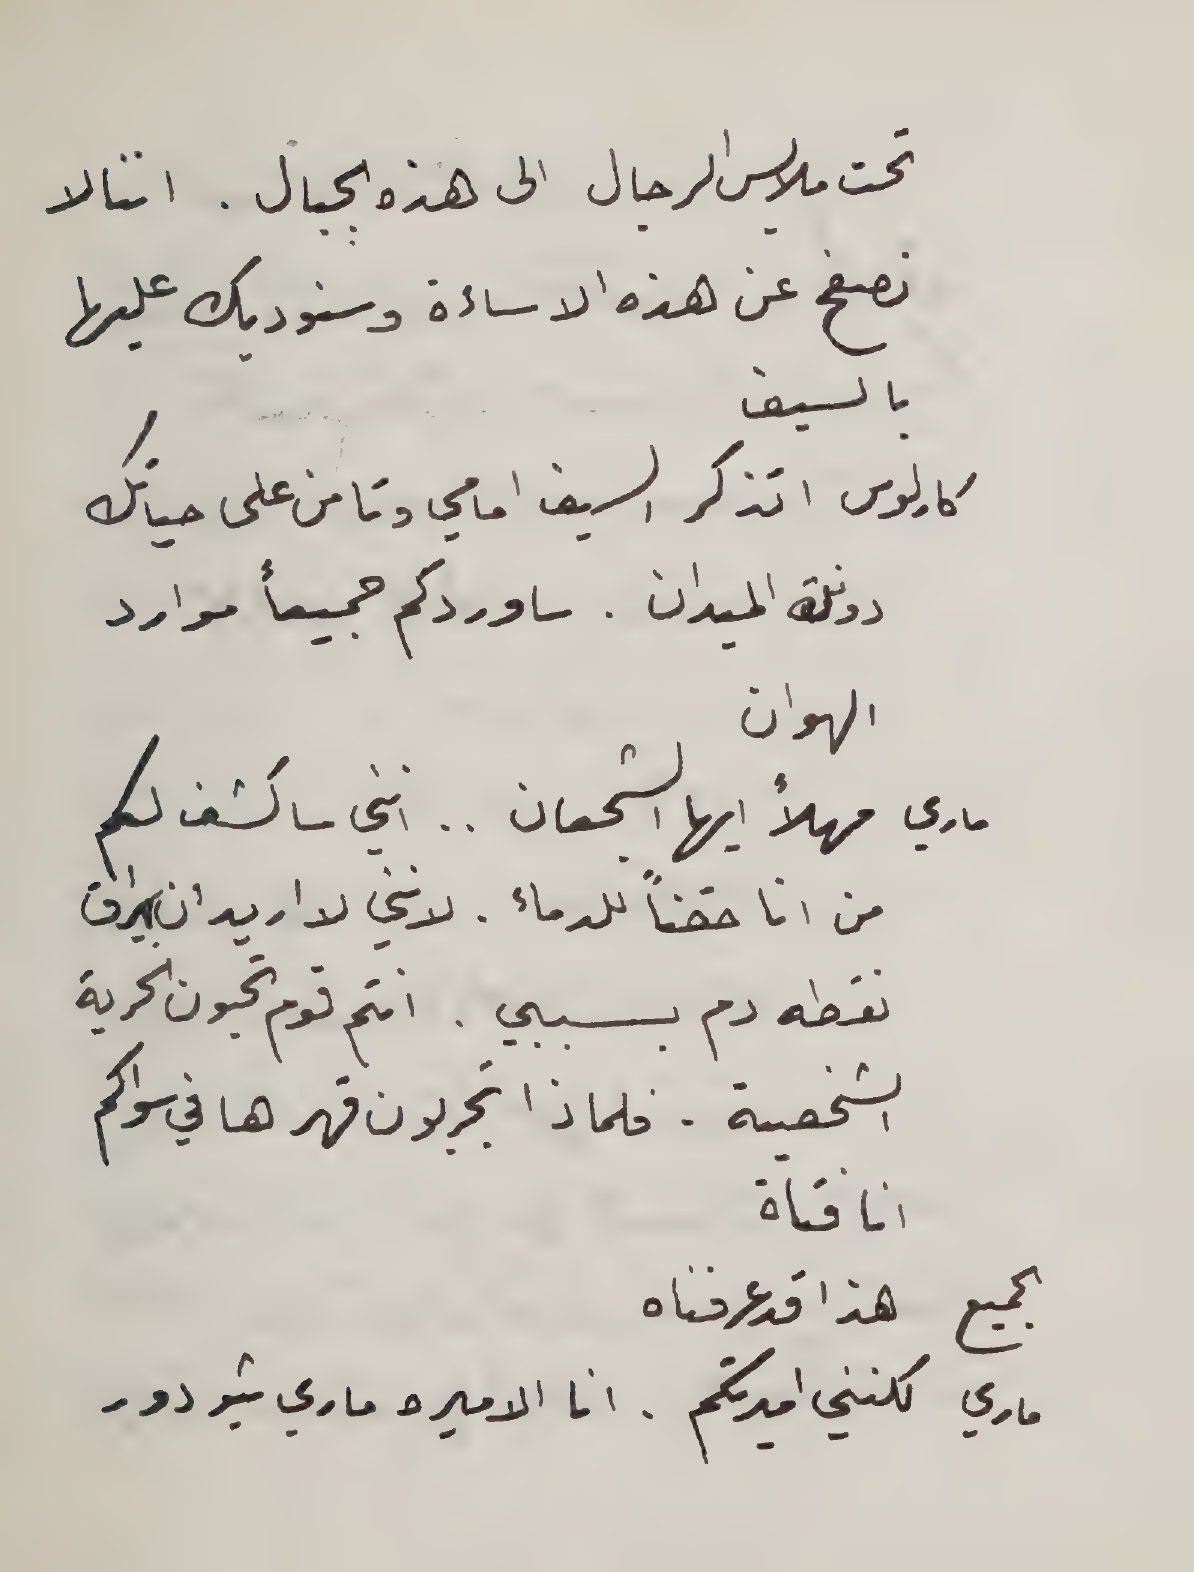 تحت ملابس الرجال الى هذه الجبال . اننا لا
نصفح عن هذه الاساءة وسنوديك عليها
بالسيف
كارلوس اتذكر السيف امامي وتامن على حياتك
دونك الميدان . ساوردكم جميعاً موارد
الهوان
ماري مهلاً ايها الشجعان .. انني ساكشف لكم
من انا حقناً للدماء . لانني لا اريد ان يهراق
نقطه دم بسببي . انتم قوم تحبون الحرية
الشخصية . فلماذا تجربون قهرها في سواكم
انا فتاة
الجميع هذا قد عرفناه
ماري لكنني اميرتكم . انا الاميره ماري تيودور